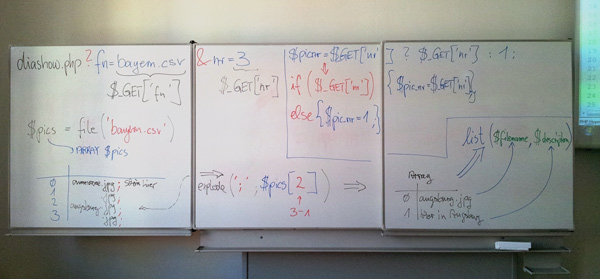 diashow.php ? fn=bayern.csv & nr = 3
$_GET['fn']
$_GET['nr']
$pics = file ('bayern.csv')
ARRAY $pics
0 .jpg;
1 jpg;
2 augsburg.jpg;
3 jpg;
$picnr = $_GET['nr'] ? $_GET['nr'] : 1;
if ($_GET['nr']) {$pic_nr = $_GET['nr'];}
else {$pic_nr = 1;}
explode (';', $pics[2])
3-1
list ($filename, $description)
Array
0 augsburg.jpg
1 in Augsburg